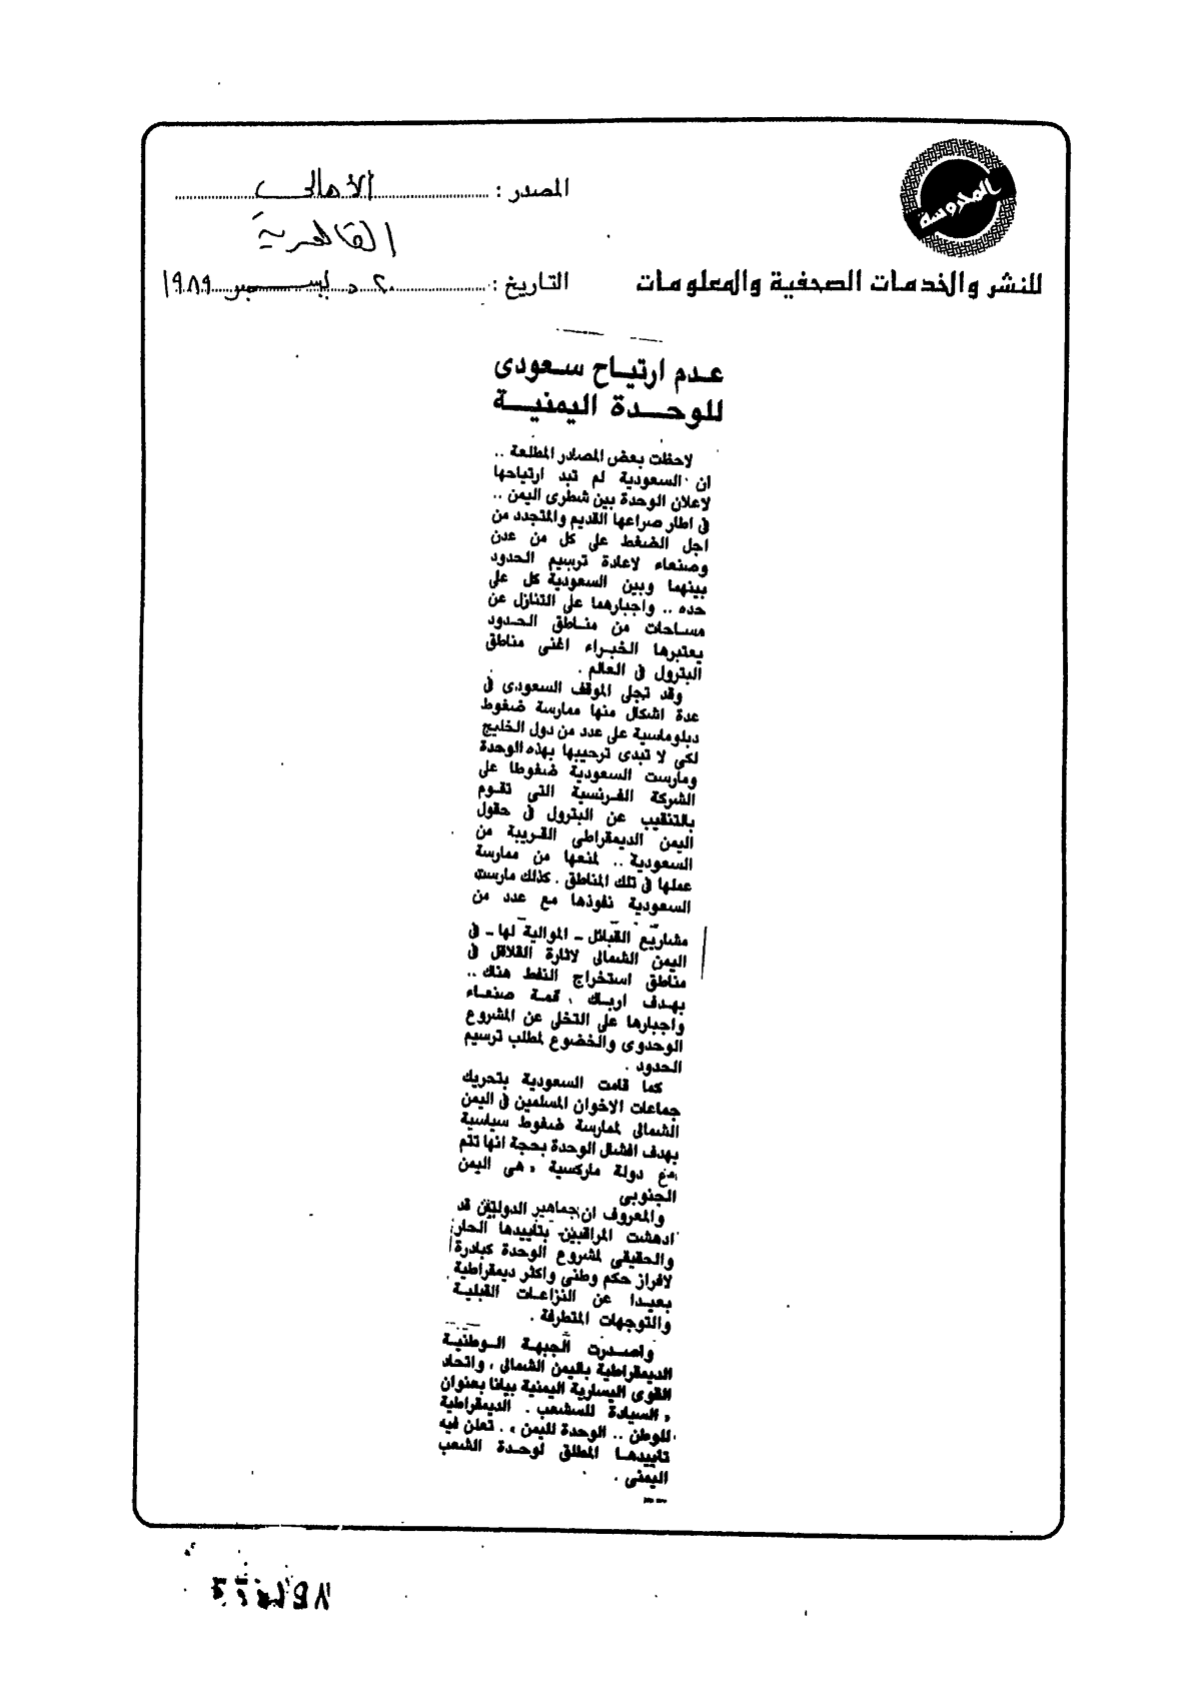 المحروسة
للنشر والخدمات الصحفية والمعلومات
المصدر : الأهالى
القاهرية
التاريخ : ٢٠ ديسمبر ١٩٨٩
عدم ارتياح سعودى
للوحدة اليمنية
لاحظت بعض المصادر المطلعة ..
ان السعودية لم تبد ارتياحها
لاعلان الوحدة بين شطرى اليمن ..
فى اطار صراعها القديم والمتجدد من
اجل الضغط على كل من عدن
وصنعاء لاعادة ترسيم الحدود
بينهما وبين السعودية كل على
حده .. واجبارهما على التنازل عن
مساحات من مناطق الحدود
يعتبرها الخبراء اغنى مناطق
البترول فى العالم .
وقد تجلى الموقف السعودى فى
عدة اشكال منها ممارسة ضغوط
دبلوماسية على عدد من دول الخليج
لكى لا تبدى ترحيبها بهذه الوحدة
ومارست السعودية ضغوطا على
الشركة الفرنسية التى تقوم
بالتنقيب عن البترول فى حقول
اليمن الديمقراطى القريبة من
السعودية .. لمنعها من ممارسة
عملها فى تلك المناطق . كذلك مارست
السعودية نفوذها مع عدد من
مشاريع القبائل ـ الموالية لها ـ فى
اليمن الشمالى لاثارة القلاقل فى
مناطق استخراج النفط هناك ..
بهدف ارباك ، قمة صنعاء
واجبارها على التخلى عن المشروع
الوحدوى والخضوع لمطلب ترسيم
الحدود .
كما قامت السعودية بتحريك
جماعات الاخوان المسلمين فى اليمن
الشمالى لممارسة ضغوط سياسية
بهدف افشال الوحدة بحجة انها تتم
مع دولة ماركسية ، هى اليمن
الجنوبى
والمعروف ان جماهير الدولتين قد
ادهشت المراقبين بتاييدها الحار
والحقيقى لمشروع الوحدة كبادرة
لافراز حكم وطنى واكثر ديمقراطية
بعيدا عن النزاعات القبلية
والتوجهات المتطرفة .
واصدرت الجبهة الوطنية
الديمقراطية باليمن الشمالى ، واتحاد
القوى اليسارية اليمنية بيانا بعنوان
، السيادة للشعب . الديمقراطية
للوطن .. الوحدة لليمن ، . تعلن فيه
تاييدها المطلق لوحدة الشعب
اليمنى .